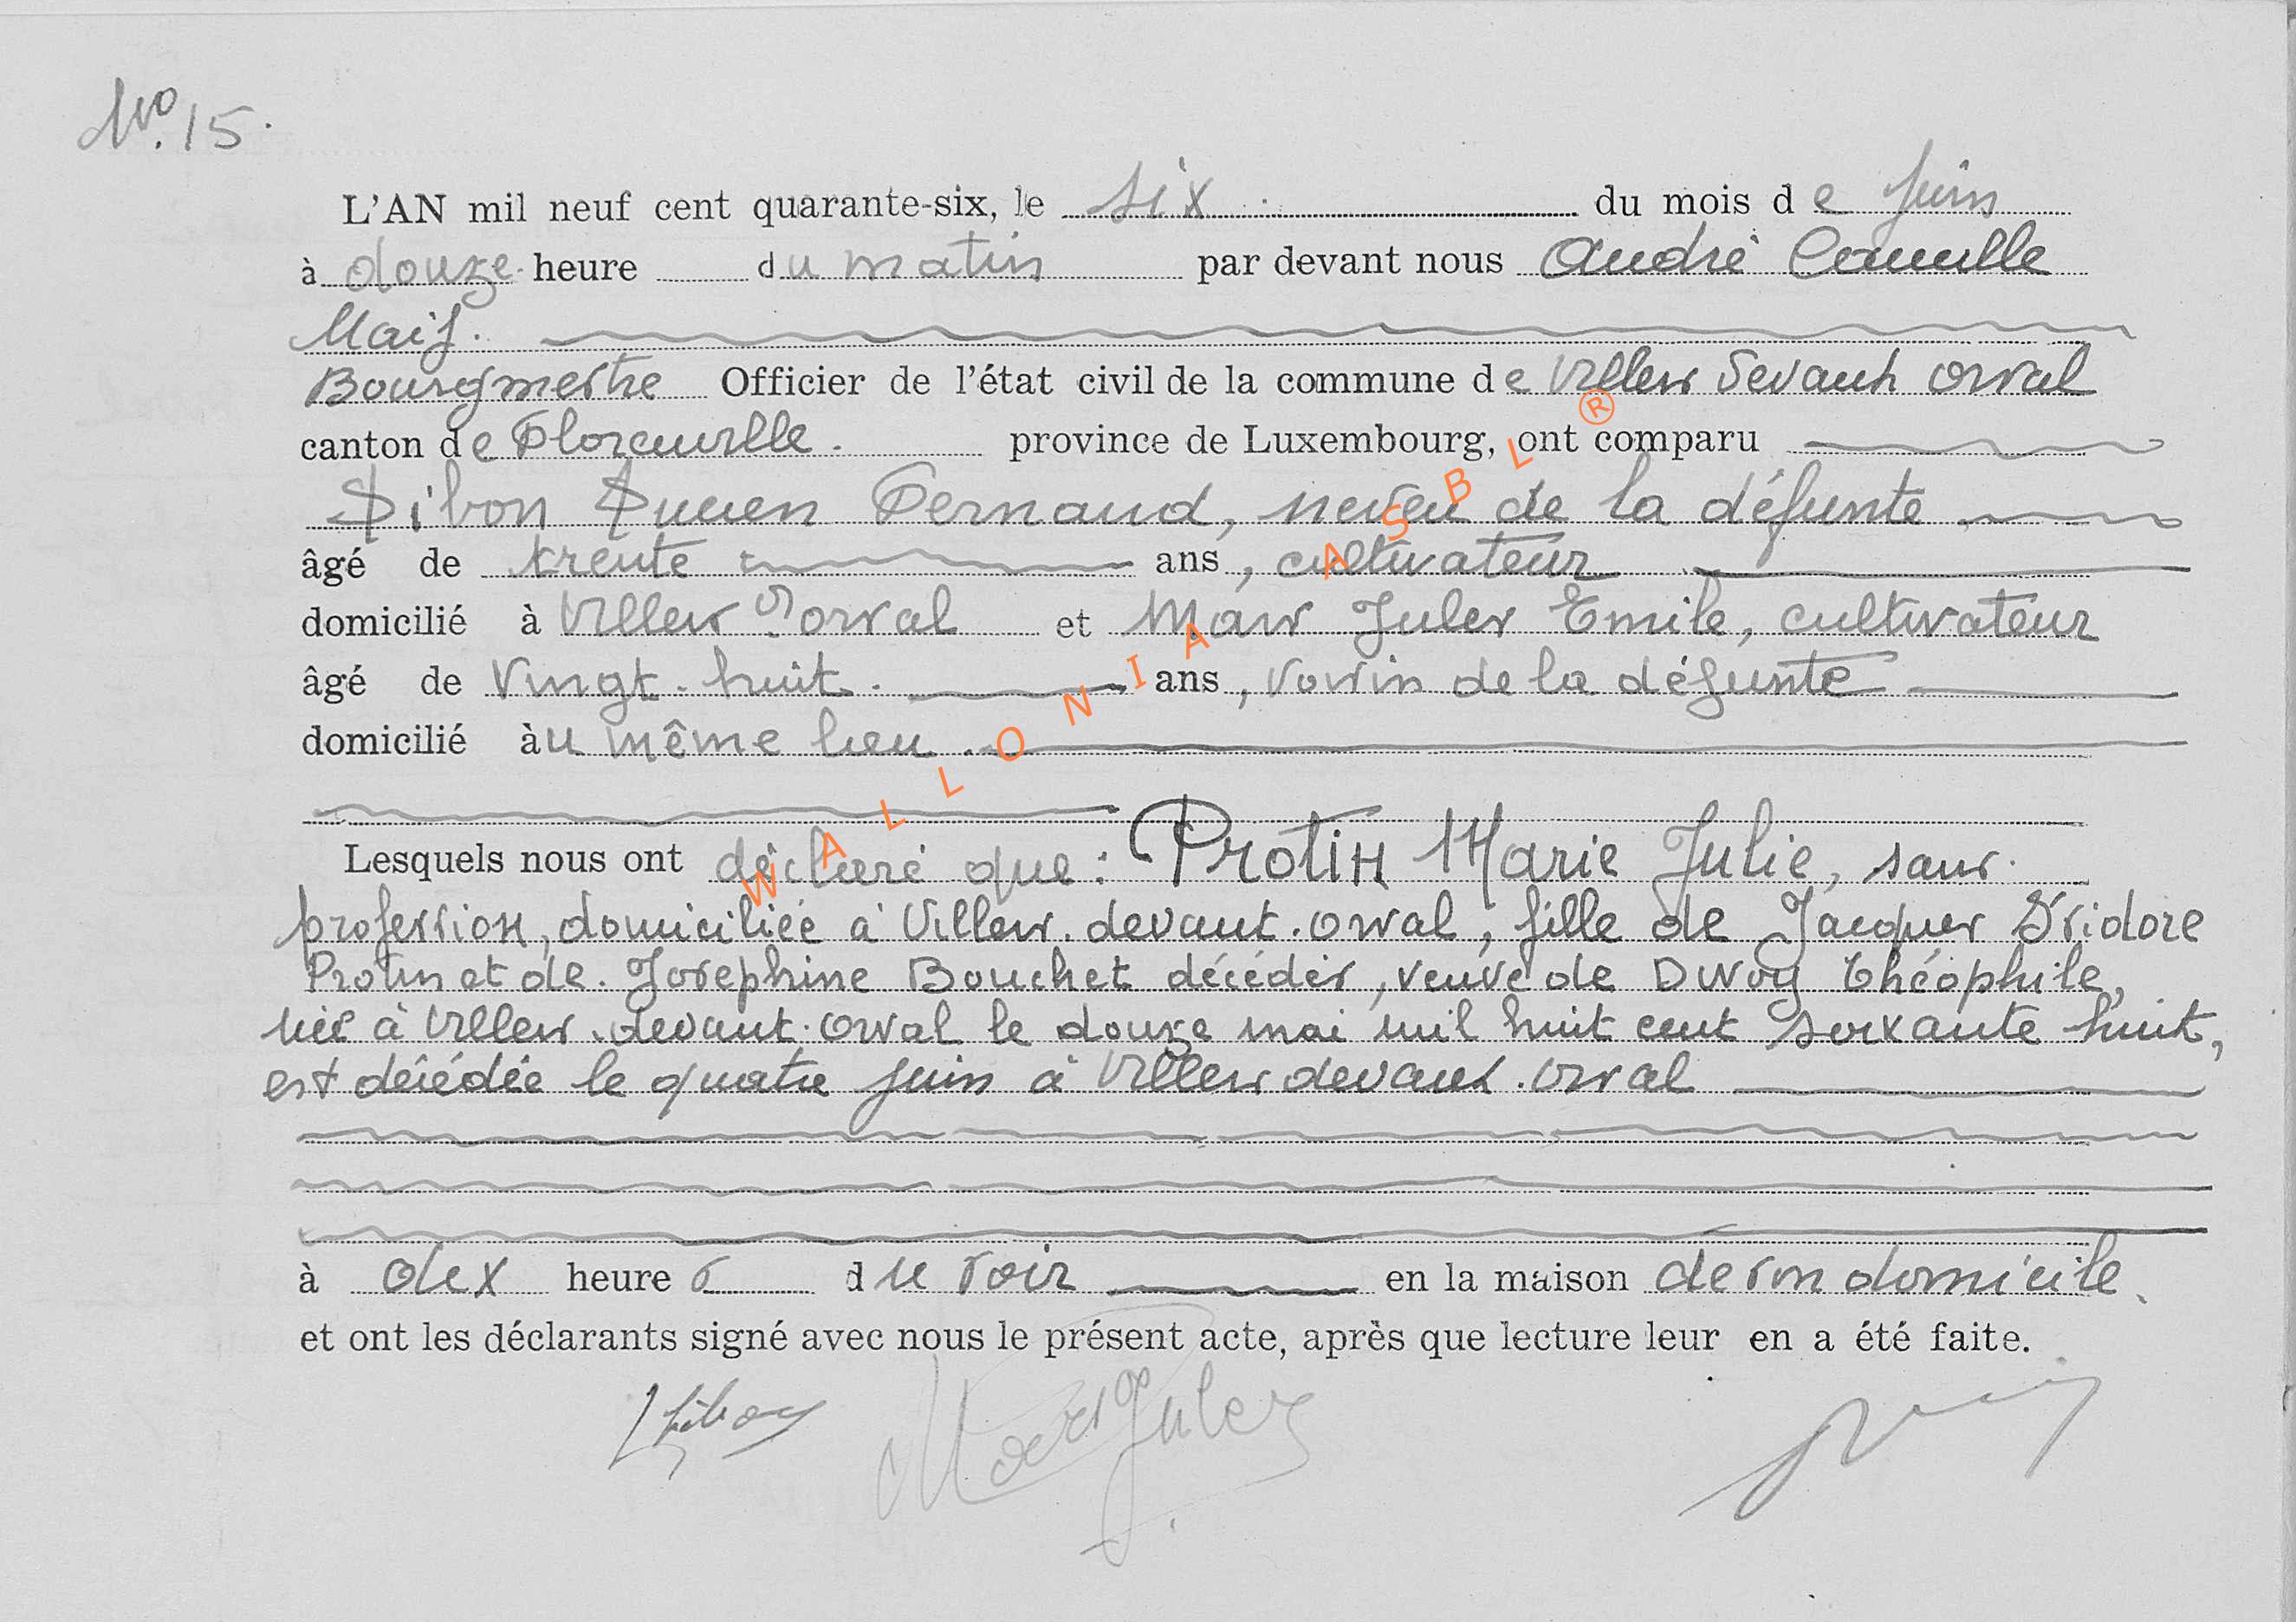 No. 15.
L'AN mil neuf cent quarante-six, le six du mois de Juin
à douze heure du matin par devant nous André Camille
Maij.
Bourgmestre Officier de l'état civil de la commune de Villers devant orval
canton de Florenville. province de Luxembourg, ont comparu
Lucien Fernand, neveu de la défunte,
âgé de trente ans, cultivateur
domicilié à Villers d'orval et Mars Jules Emile, cultivateur
âgé de vingt-huit. ans, voisin de la défunte
domicilié àu même lieu.
Lesquels nous ont déclaré que: Protin Marie Julie, sans
profession, domiciliée à Villers. devant. orval, fille de Jacques Isidore
Protin et de. Josephine Bouchet décédés, veuve de Théophile,
née à Villers. devant. Orval le douze mai mil huit cent soixante huit,
est décédée le quatre juin à Villers devant. Orval
à dix heure s du soir en la maison de son domicile.
et ont les déclarants signé avec nous le présent acte, après que lecture leur en a été faite.
Mars Jules
WALLONIA ASBL ®